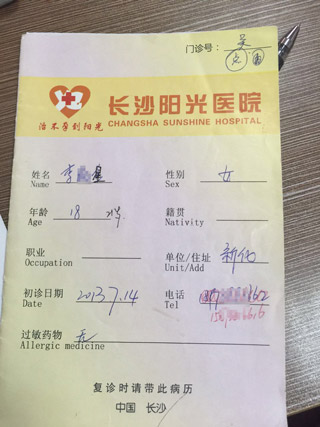 门诊号:
治不孕到阳光
长沙阳光医院
CHANGSHA SUNSHINE HOSPITAL
姓名 李 星 性别 女
Name Sex
年龄 18 籍贯
Age Nativity
职业 单位/住址 新化
Occupation Unit/Add
初诊日期 2013.7.14 电话
Date Tel
过敏药物 无
Allergic medicine
复诊时请带此病历
中国 长沙